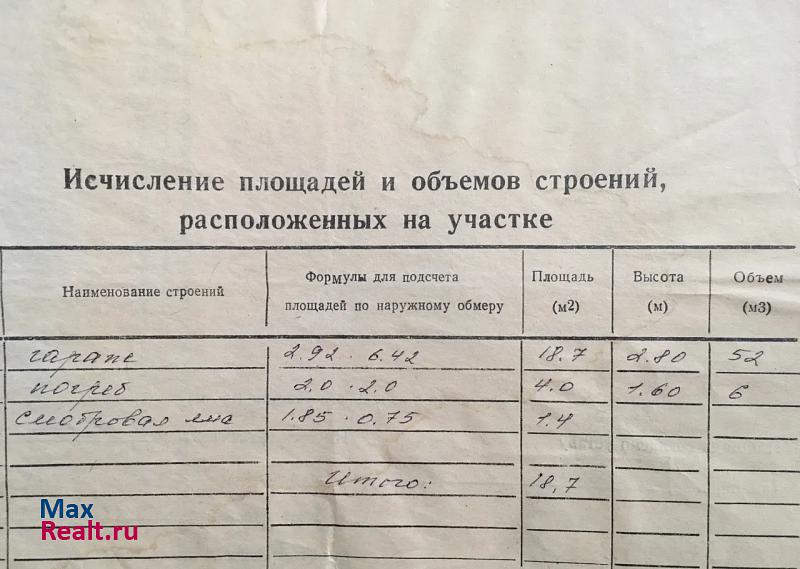 Исчисление площадей и объемов строений,
расположенных на участке
Наименование строений
Формулы для подсчета
площадей по наружному обмеру
Площадь
(м2)
Высота
(м)
Объем
(м3)
гараж 2.92 · 6.42 18.7 2.80 52
погреб 2.0 · 2.0 4.0 1.60 6
смотровая яма 1.85 · 0.75 1.4
Итого: 18,7
Max
Realt.ru